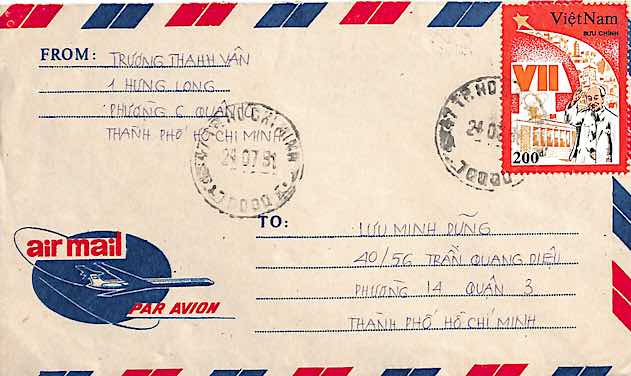 FROM: TRƯƠNG THANH VÂN
1 HƯNG LONG
PHƯỜNG 6 QUẬN
THÀNH PHỐ HỒ CHÍ MINH
ViệtNam
BƯU CHÍNH
VII
200đ
TP.HỒ CHÍ MINH
24 07 91
TP.HO
24 07
air mail
PAR AVION
TO: LƯU MINH DŨNG
40/56 TRẦN QUANG DIỆU
PHƯỜNG 14 QUẬN 3
THÀNH PHỐ HỒ CHÍ MINH